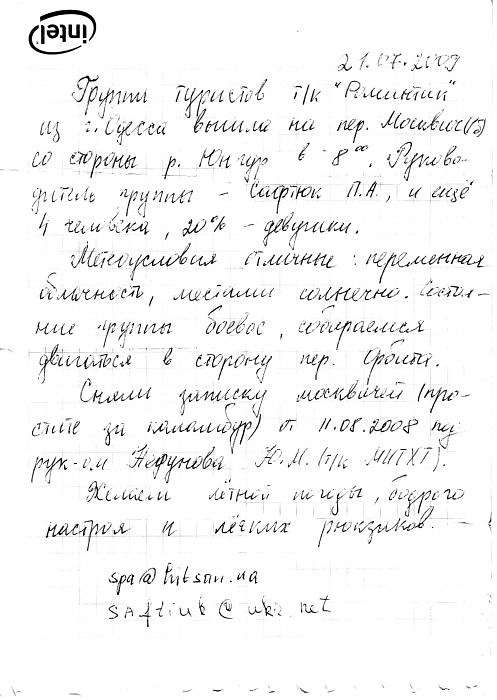 intel
21.07.2009
Группа туристов т/к "Романтик"
из г. Одесса вышла на пер. Москвич(1Б)
со стороны р. Юнгур в 8⁰⁰. Руково-
дитель группы - Сафтюк П.А., и ещё
4 человека, 20% - девушки.
Метеоусловия отличные: переменная
облачность, местами солнечно. Состоя-
ние группы боевое, собираемся
двигаться в сторону пер. Орбита.
Сняли записку москвичей (про-
стите за каламбур) от 11.08.2008 под
рук-ом Нефунова Ю.М. (т/к МИТХТ).
Желаем лётной погоды, бодрого
настроя и лёгких рюкзиков.
spa@hitson.ua
saftiuk@ukr.net